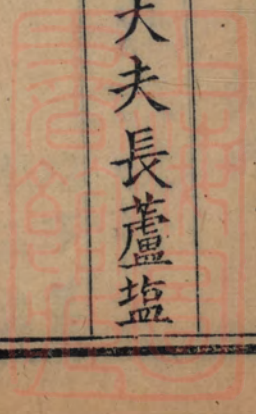 大夫長蘆塩